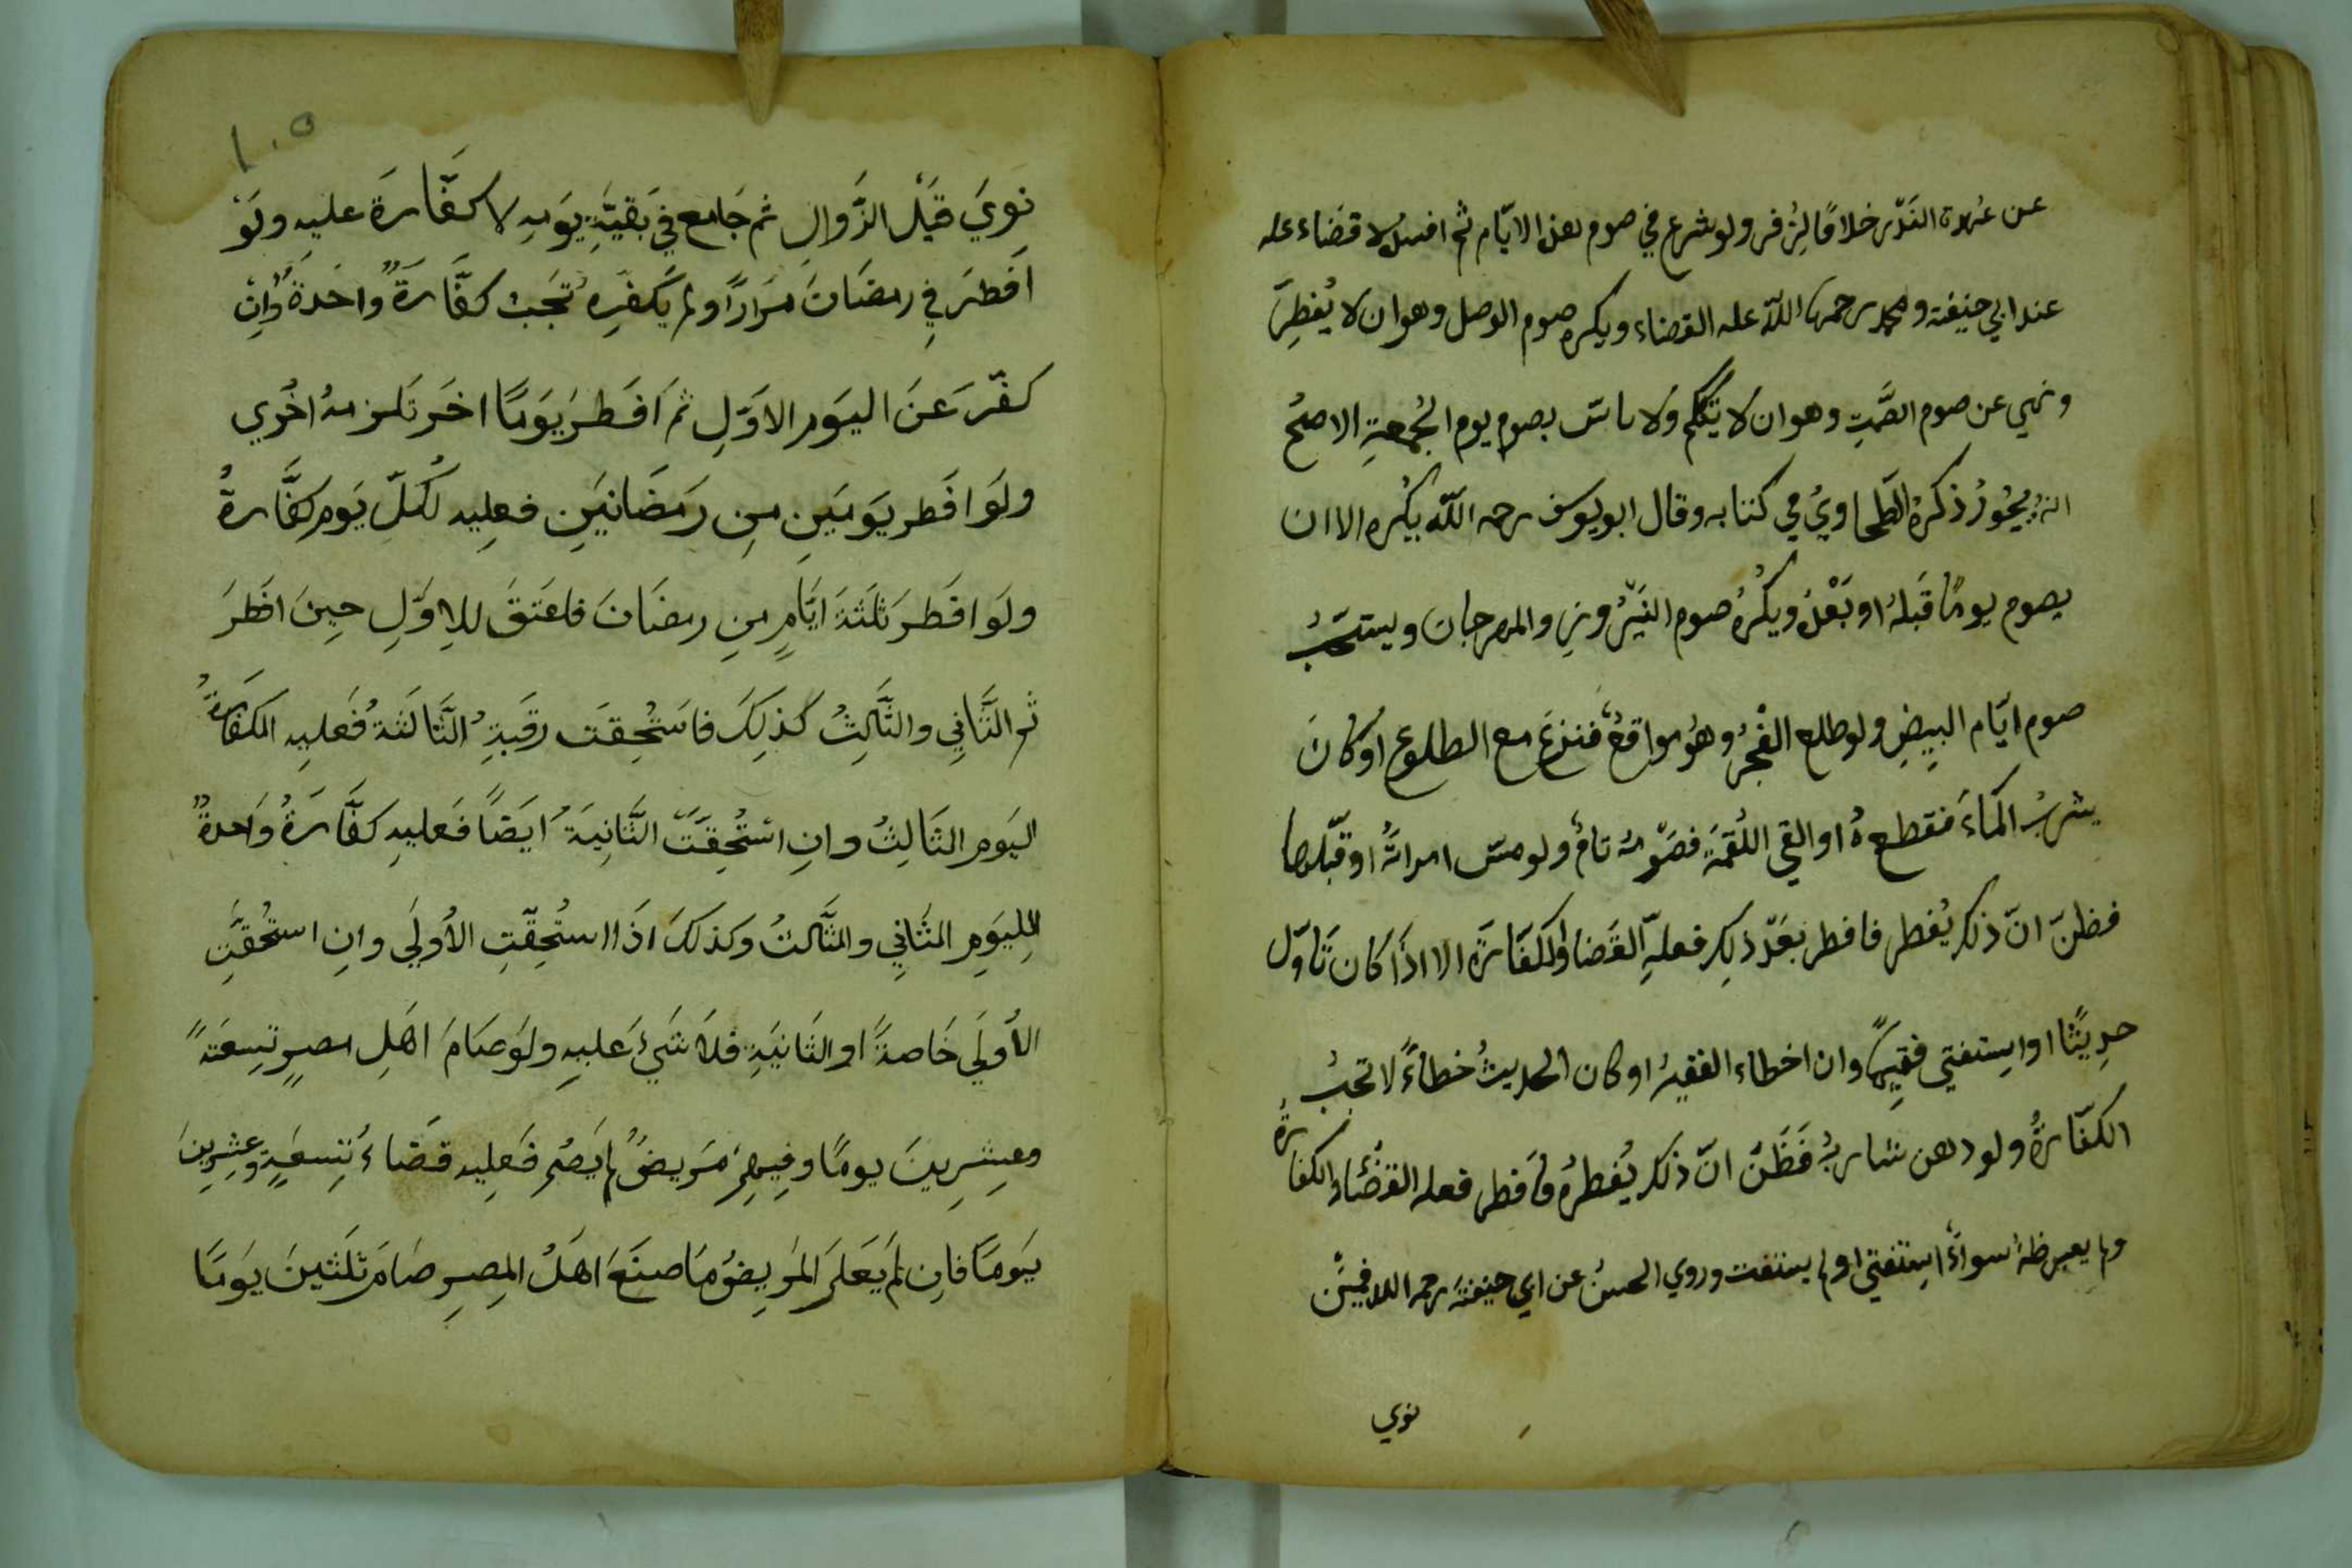 عن عهدة النذر خلافا لزفر ولو شرع في صوم هذه الايّام ثم افسده لا قضاء عليه
عند ابي حنيفة ومحمد رحمهما اللّه عليه القضاء ويكره صوم الوصل وهو ان لا يُفطِرَ
ونهي عن صوم الصَّمتِ وهو ان لا يتكلم ولا باس بصوم يوم الجُمعةِ الاصحُ
انهُ يجُوزُ ذكرهُ الطَحاويُ في كتابه وقال ابو يوسف رحمه اللّه يُكره الا ان
يصوم يومًا قَبلهُ او بَعْدهُ ويُكْرهُ صوم النَيْرُوزِ والمهرجان ويستحَبُّ
صوم ايّام البِيضِ ولو طلع الفْجرُ وهُو مواقعٌ فنزعَ مع الطلوع او كانَ
يشربُ الماءَ فقطعهُ او القي اللُقمةَ فصَوْمهُ تامٌ ولو مسّ امراتهُ او قبّلها
فظنّ انّ ذلك يُفطر فافطر بَعْد ذلِك فعليهِ القَضا والكفّارَة الا اذَا كان تَاوّل
حدِيثًا او استفتي فقِيهًا وان اخطاء الفقيهُ او كان الحديثُ خطاءً لا تجبُ
الكفّارةُ ولو دهن شاربهُ فَظَنَّ انّ ذلك يُفطرهُ فاَفطر فعليه القضَاء والكفارةُ
ولم يعبر ظنهُ سواءً استفتي او لم يستفت وروي الحسنُ عن ابي حنيفةَ رحمه الله فيمَن
نوي
١٠٥
نوِيَ قبَل الزَّوالِ ثم جَامع في بَقيّةِ يوَمهِ لا كفَّارةَ عليه ولَوْ
اَفطرَ فِي رمضَانَ مرَارًا ولم يَكفِّر تجَب كفّارَةٌ واحَدةٌ واِن
كفّرَ عَنَ اليوَمِ الاوَّلِ ثمَ اَفَطرَ يوَمًا اخَر تَلزمهُ اخُري
ولَو افَطر يوَمَينِ منِ رَمضَانيَنِ فعلِيه لكُلّ يَومِ كفَّارةٌ
ولَو افَطرَ ثلَثةَ ايَّامٍ منِ رمضَانَ فاعَتقَ للاِوَّلِ حيِنَ افَطرَ
ثم الثَّانِي والثَّالِثُ كَذلِكَ فاسَتُحِقَت رقَبةِ الثَّالثَةُ فَعليهِ الكفارةُ
اليَومِ الثَالِثُ وانِ استُحِقَّتَ الثَّانِيَةُ ايَضًا فَعليهِ كفَّارَةُ واَحدةٌ
لِليوَمِ الثَانِي والثَّالثُ وكذلكَ اذَا استُحِقّتِ الاُولَي وانِ استُحقَّتِ
الاُولَي خَاصةً او الثَانيَةِ فلاَ شَيءَ عَليهِ ولوَ صَامَ اهَلِ مصرٍ تسِعَةً
وعِشرِينَ يومًا وفِيهمِ مَريضٌ لم يَصُم فَعلِيه قضَاءُ تِسعَةٍ وعِشرِينَ
يوَمًا فاِن لم يَعَلمَ المَريِضُ مَا صنَعَ اهَلُ المِصرِ صَامَ ثلَثينَ يوَمًا